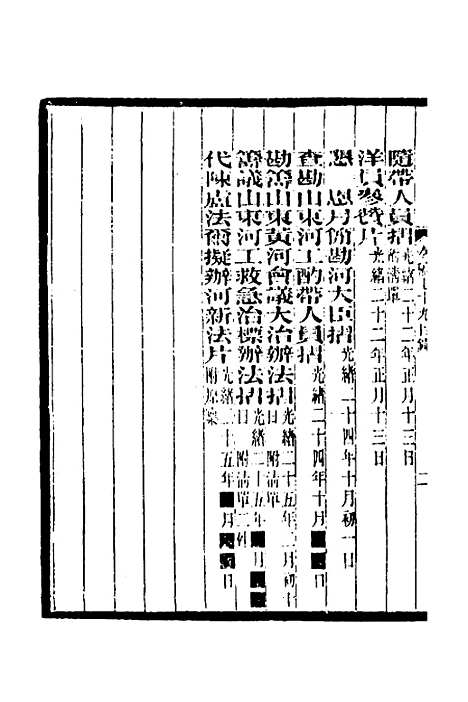 隨帶人員摺 光緒二十二年正月十三日 附清單
洋員參贊片 光緒二十二年正月十三日
懇 恩另簡勘河大臣摺 光緒二十四年十月初一日
查勘山東河工酌帶人員摺 光緒二十四年十月 日
勘籌山東黃河會議大治辦法摺 光緒二十五年二月初十日 附清單
籌議山東河工救急治標辦法摺 光緒二十五年 月 日 附清單二件
代陳盧法爾擬辦河新法片 光緒二十五年 月 日 附原案
二